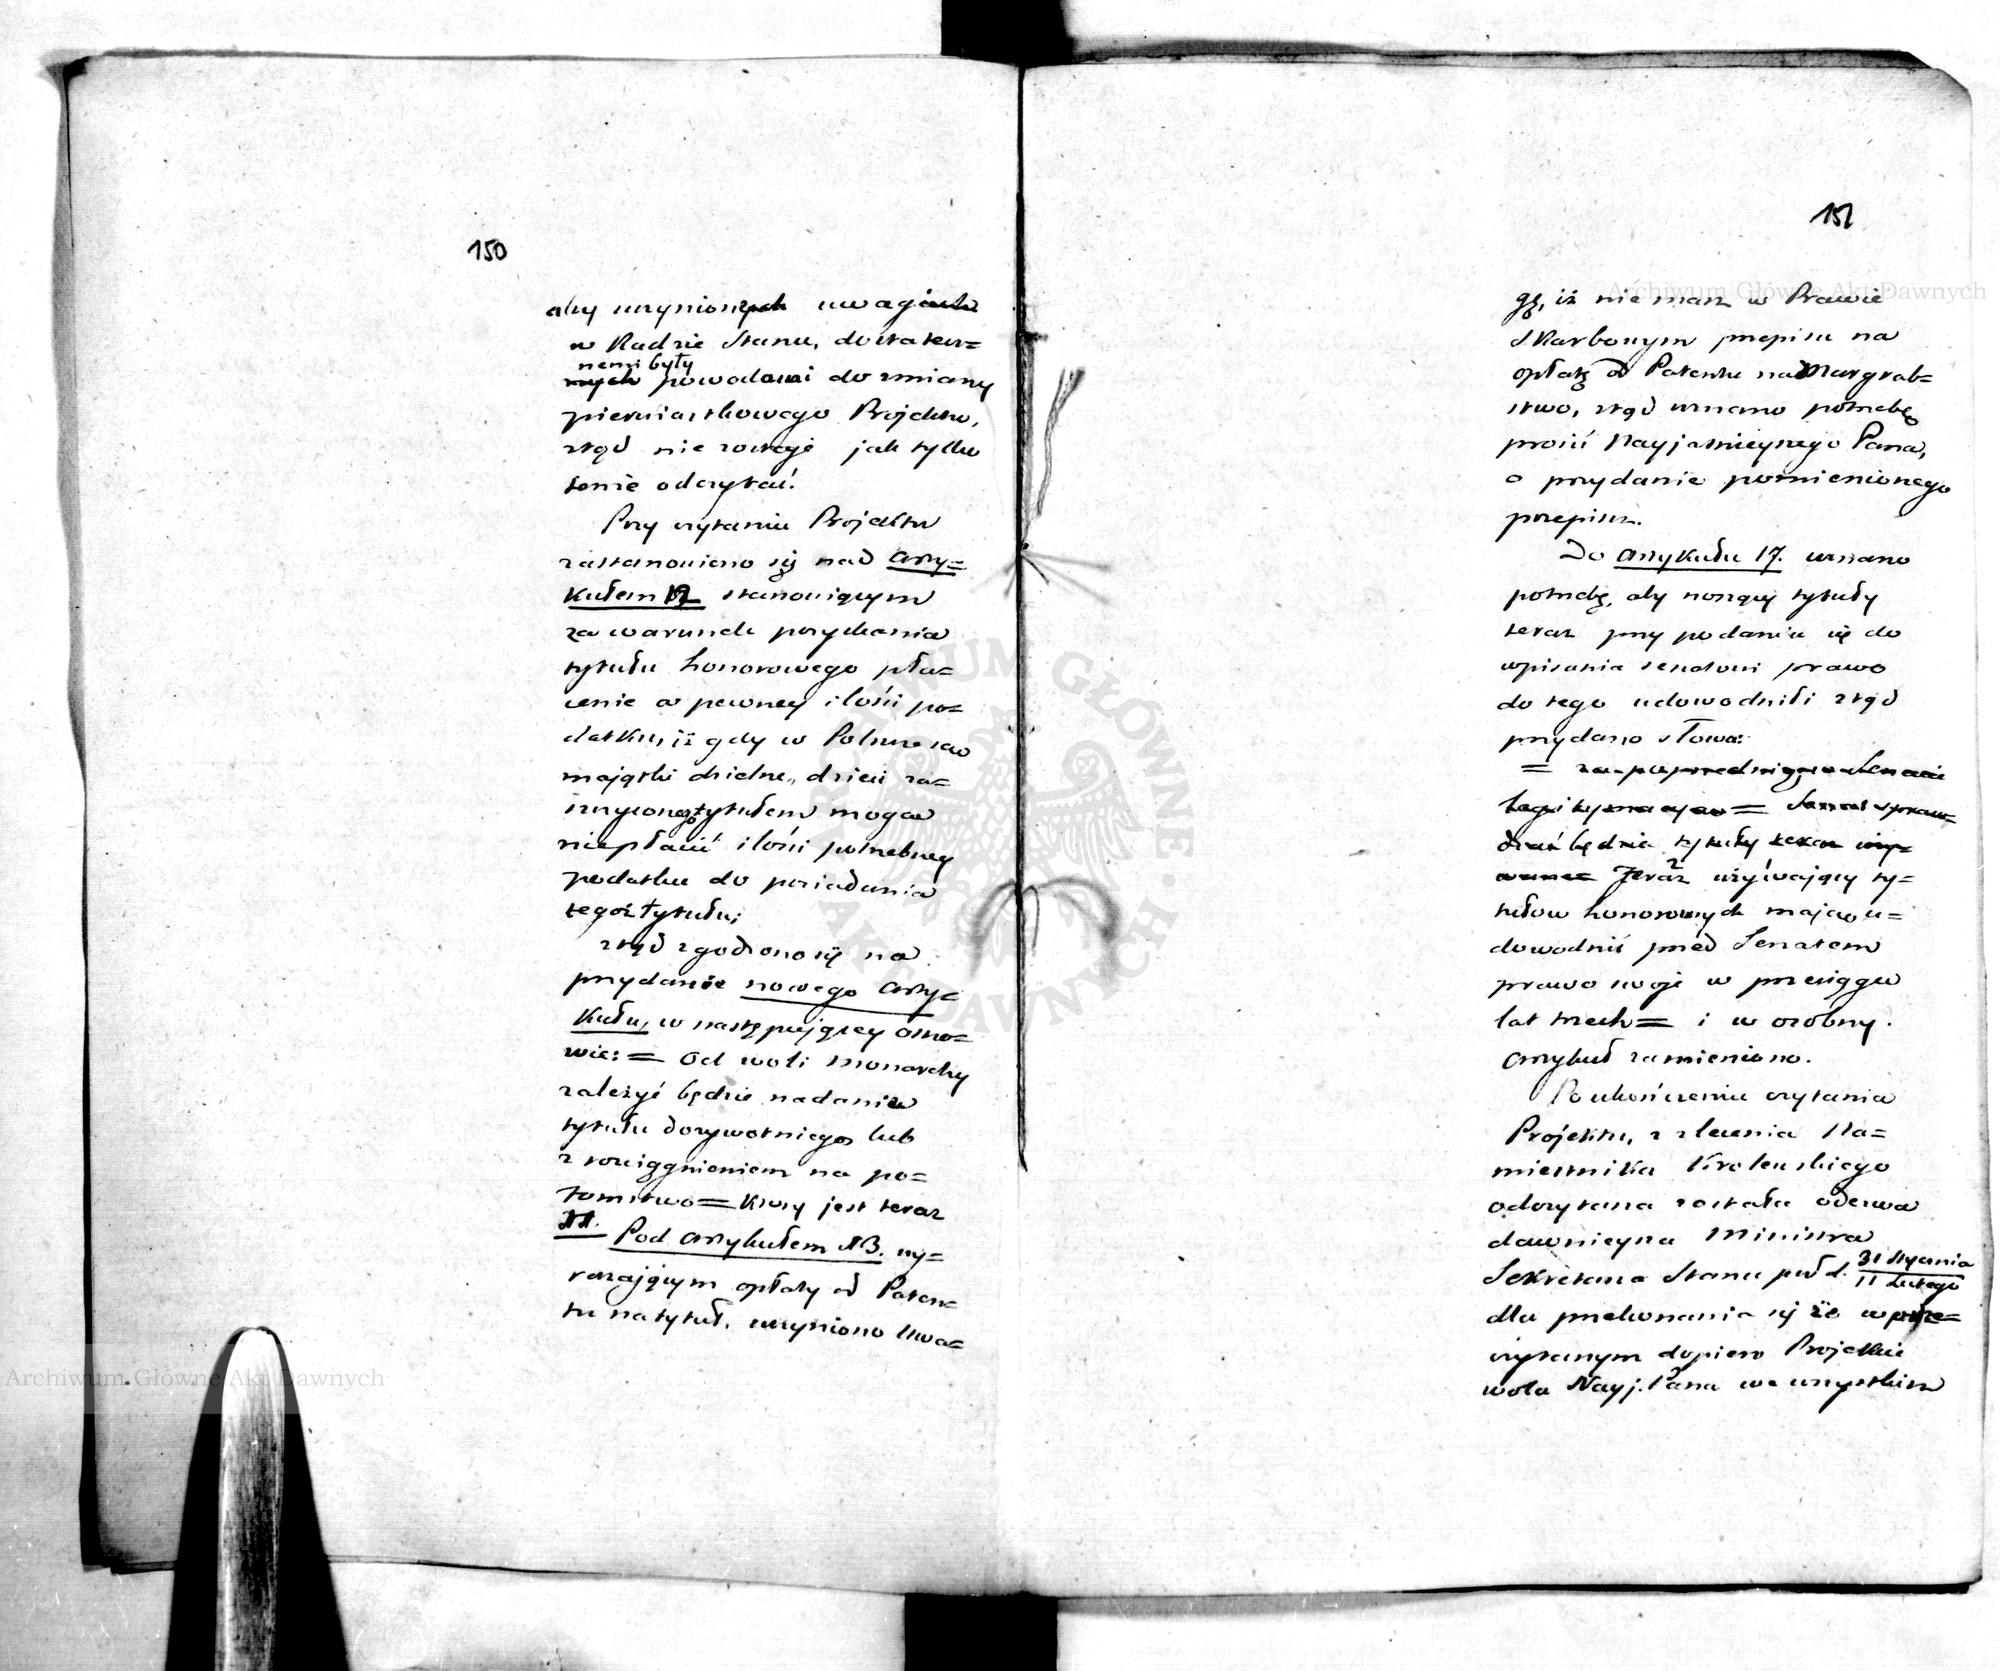 150
aby uczynionych uwagach
w Radzie Stanu, dostatecz=
nemi były
nych powodami do zmiany
pierwiastkowego Projektu,
ztąd nie zostaje jak tylko
tenże odczytać.
Przy czytaniu Projektu
zastanowiono się nad Arty=
kułem 12 stanowiącym
za warunek pozyskania
tytułu honorowego pła=
cenie w pewney ilości po=
datku, iż gdy w Polszcze są
majątki dzielne, dzieci za=
szczyconego tytułem mogą
niepłacić ilości potrzebney
podatku do posiadania
tegoż tytułu;
ztąd zgodzono się na
przydanie nowego Arty=
kułu, w następującey osno=
wie: = Od woli Monarchy
zależyć będzie nadanie
tytułu dożywotniego lub
z rozciągnieniem na po=
tomstwo = który jest teraz
11.
Pod Artykułem 13. wy=
rażającym opłaty od Paten=
tu na tytuł, uczyniono Uwa=
151
gę, iż nie masz w Prawie
Skarbowym przepisu na
opłatę od Patentu na Margrab=
stwo, ztąd uznano potrzebę
prosić Nayjaśnieyszego Pana,
o przydanie pomienionego
przepisu.
Do Artykułu 17. uznano
potrzebę, aby noszący tytuły
teraz przy podaniu się do
wpisania Senatowi prawo
do tego udowodnili ztąd
przydano słowa:
= za poprzedniczą w Senacie
legitymacyą = Senat spraw=
dzać będzie tytuły teraz uży=
wane Teraz używający ty=
tułow honorowych mają u=
dowodnić przed Senatem
prawo swoje w przeciągu
lat trzech = i w osóbny
Artykuł zamieniono.
Po ukończeniu czytania
Projektu, z zlecenia Na=
miestnika Krolewskiego
odczytana została odezwa
dawnieysza Ministra
Sekretarza Stanu pod d. 31 Stycznia
11 Lutego
dla przekonania się że w prze=
czytanym dopiero Projekcie
wola Nayj. Pana we wszystkim
Archiwum Główne Akt Dawnych
Archiwum Główne Akt Dawnych
ARCHIWUM GŁÓWNE AKT DAWNYCH